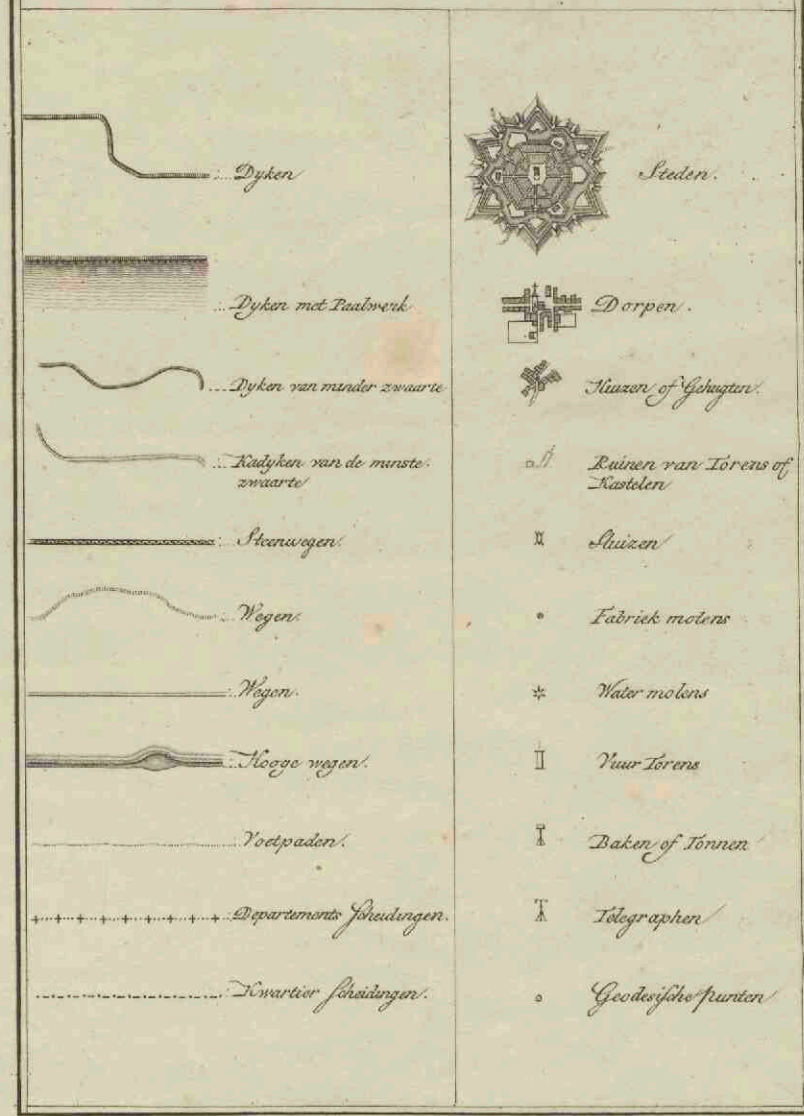 Dyken
Dyken met Paalwerk
Dyken van minder zwaarte
Kadyken van de minste
zwaarte
Steenwegen.
Wegen.
Wegen.
Hooge wegen.
Voetpaden.
Departements Scheidingen.
Kwartier Scheidingen.
Steden.
Dorpen.
Huizen of Gehugten.
Ruinen van Torens of
Kastelen
Sluizen
Fabriek molens
Water molens
Vuur Torens
Baken of Tonnen
Telegraphen
Geodesische punten